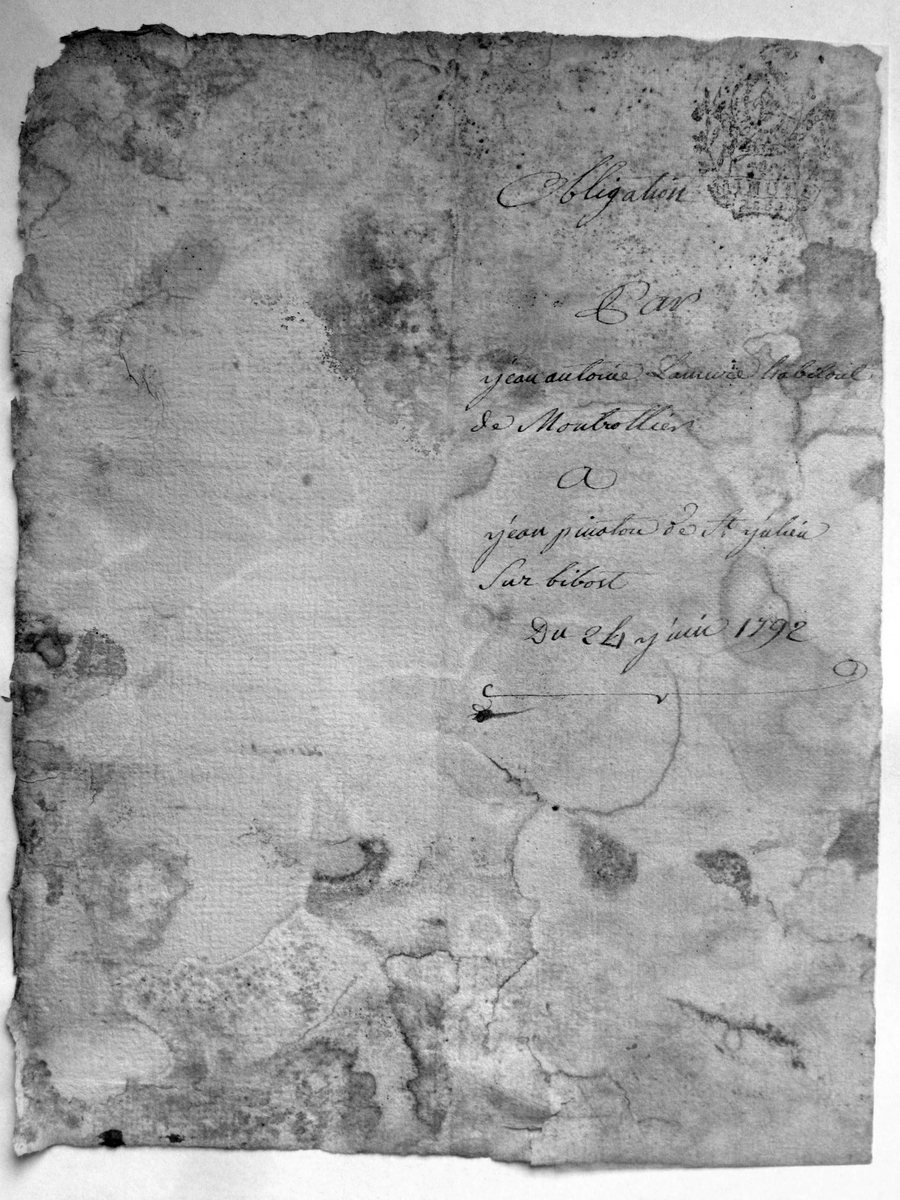 Obligation
Par
jean antoine
de Montrottier
A
jean pinatou de St julien
Sur bibost
Du 24 juin 1792